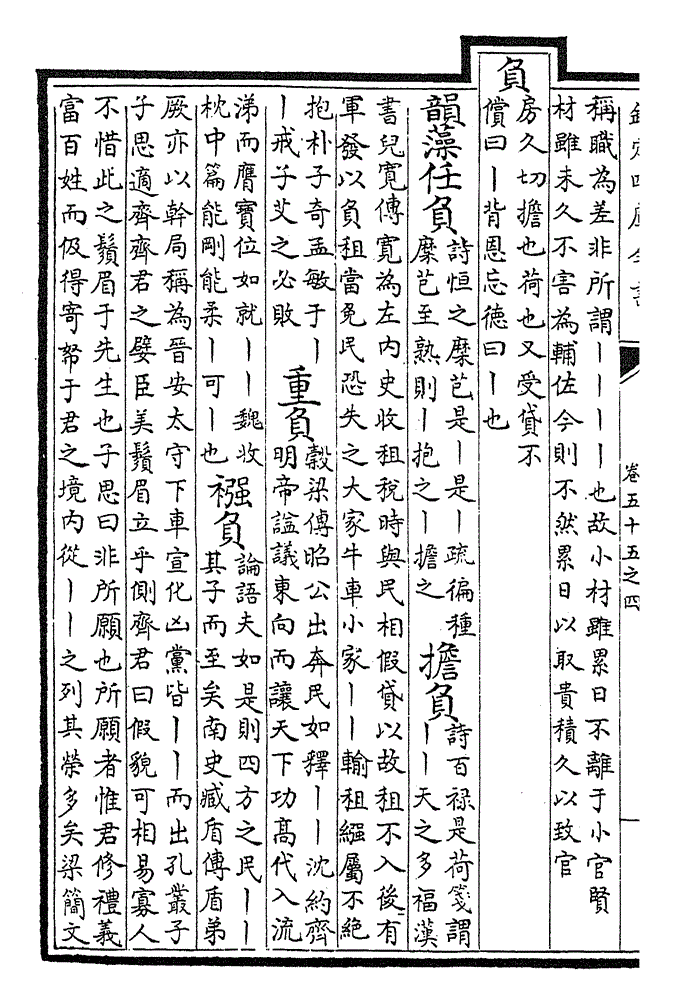 卷五十五之四
稱職為差非所謂丨丨丨丨也故小材雖累日不離于小官賢
材雖未久不害為輔佐今則不然累日以取貴積久以致官
負
房久切擔也荷也又受貸不
償曰丨背恩忘徳曰丨也
韻藻任負
詩恒之穈芑是丨是丨疏徧種
穈芑至熟則丨抱之丨擔之
擔負
詩百禄是荷箋謂
丨丨天之多福漢
書兒寛傳寛為左内史收租稅時與民相假貸以故租不入後有
軍發以負租當免民恐失之大家牛車小家丨丨輸租繦屬不絶
抱朴子奇孟敏于丨
丨戒子艾之必敗
重負
榖梁傳昭公出奔民如釋丨丨沈約齊
明帝謚議東向而讓天下功髙代入流
涕而膺寶位如就丨丨魏收
枕中篇能剛能柔丨可丨也
襁負
論語夫如是則四方之民丨丨
其子而至矣南史臧盾傳盾弟
厥亦以幹局稱為晉安太守下車宣化凶黨皆丨丨而出孔叢子
子思適齊齊君之嬖臣美鬚眉立乎側齊君曰假貌可相易寡人
不惜此之鬚眉于先生也子思曰非所願也所願者惟君修禮義
富百姓而伋得寄帑于君之境内從丨丨之列其榮多矣梁簡文